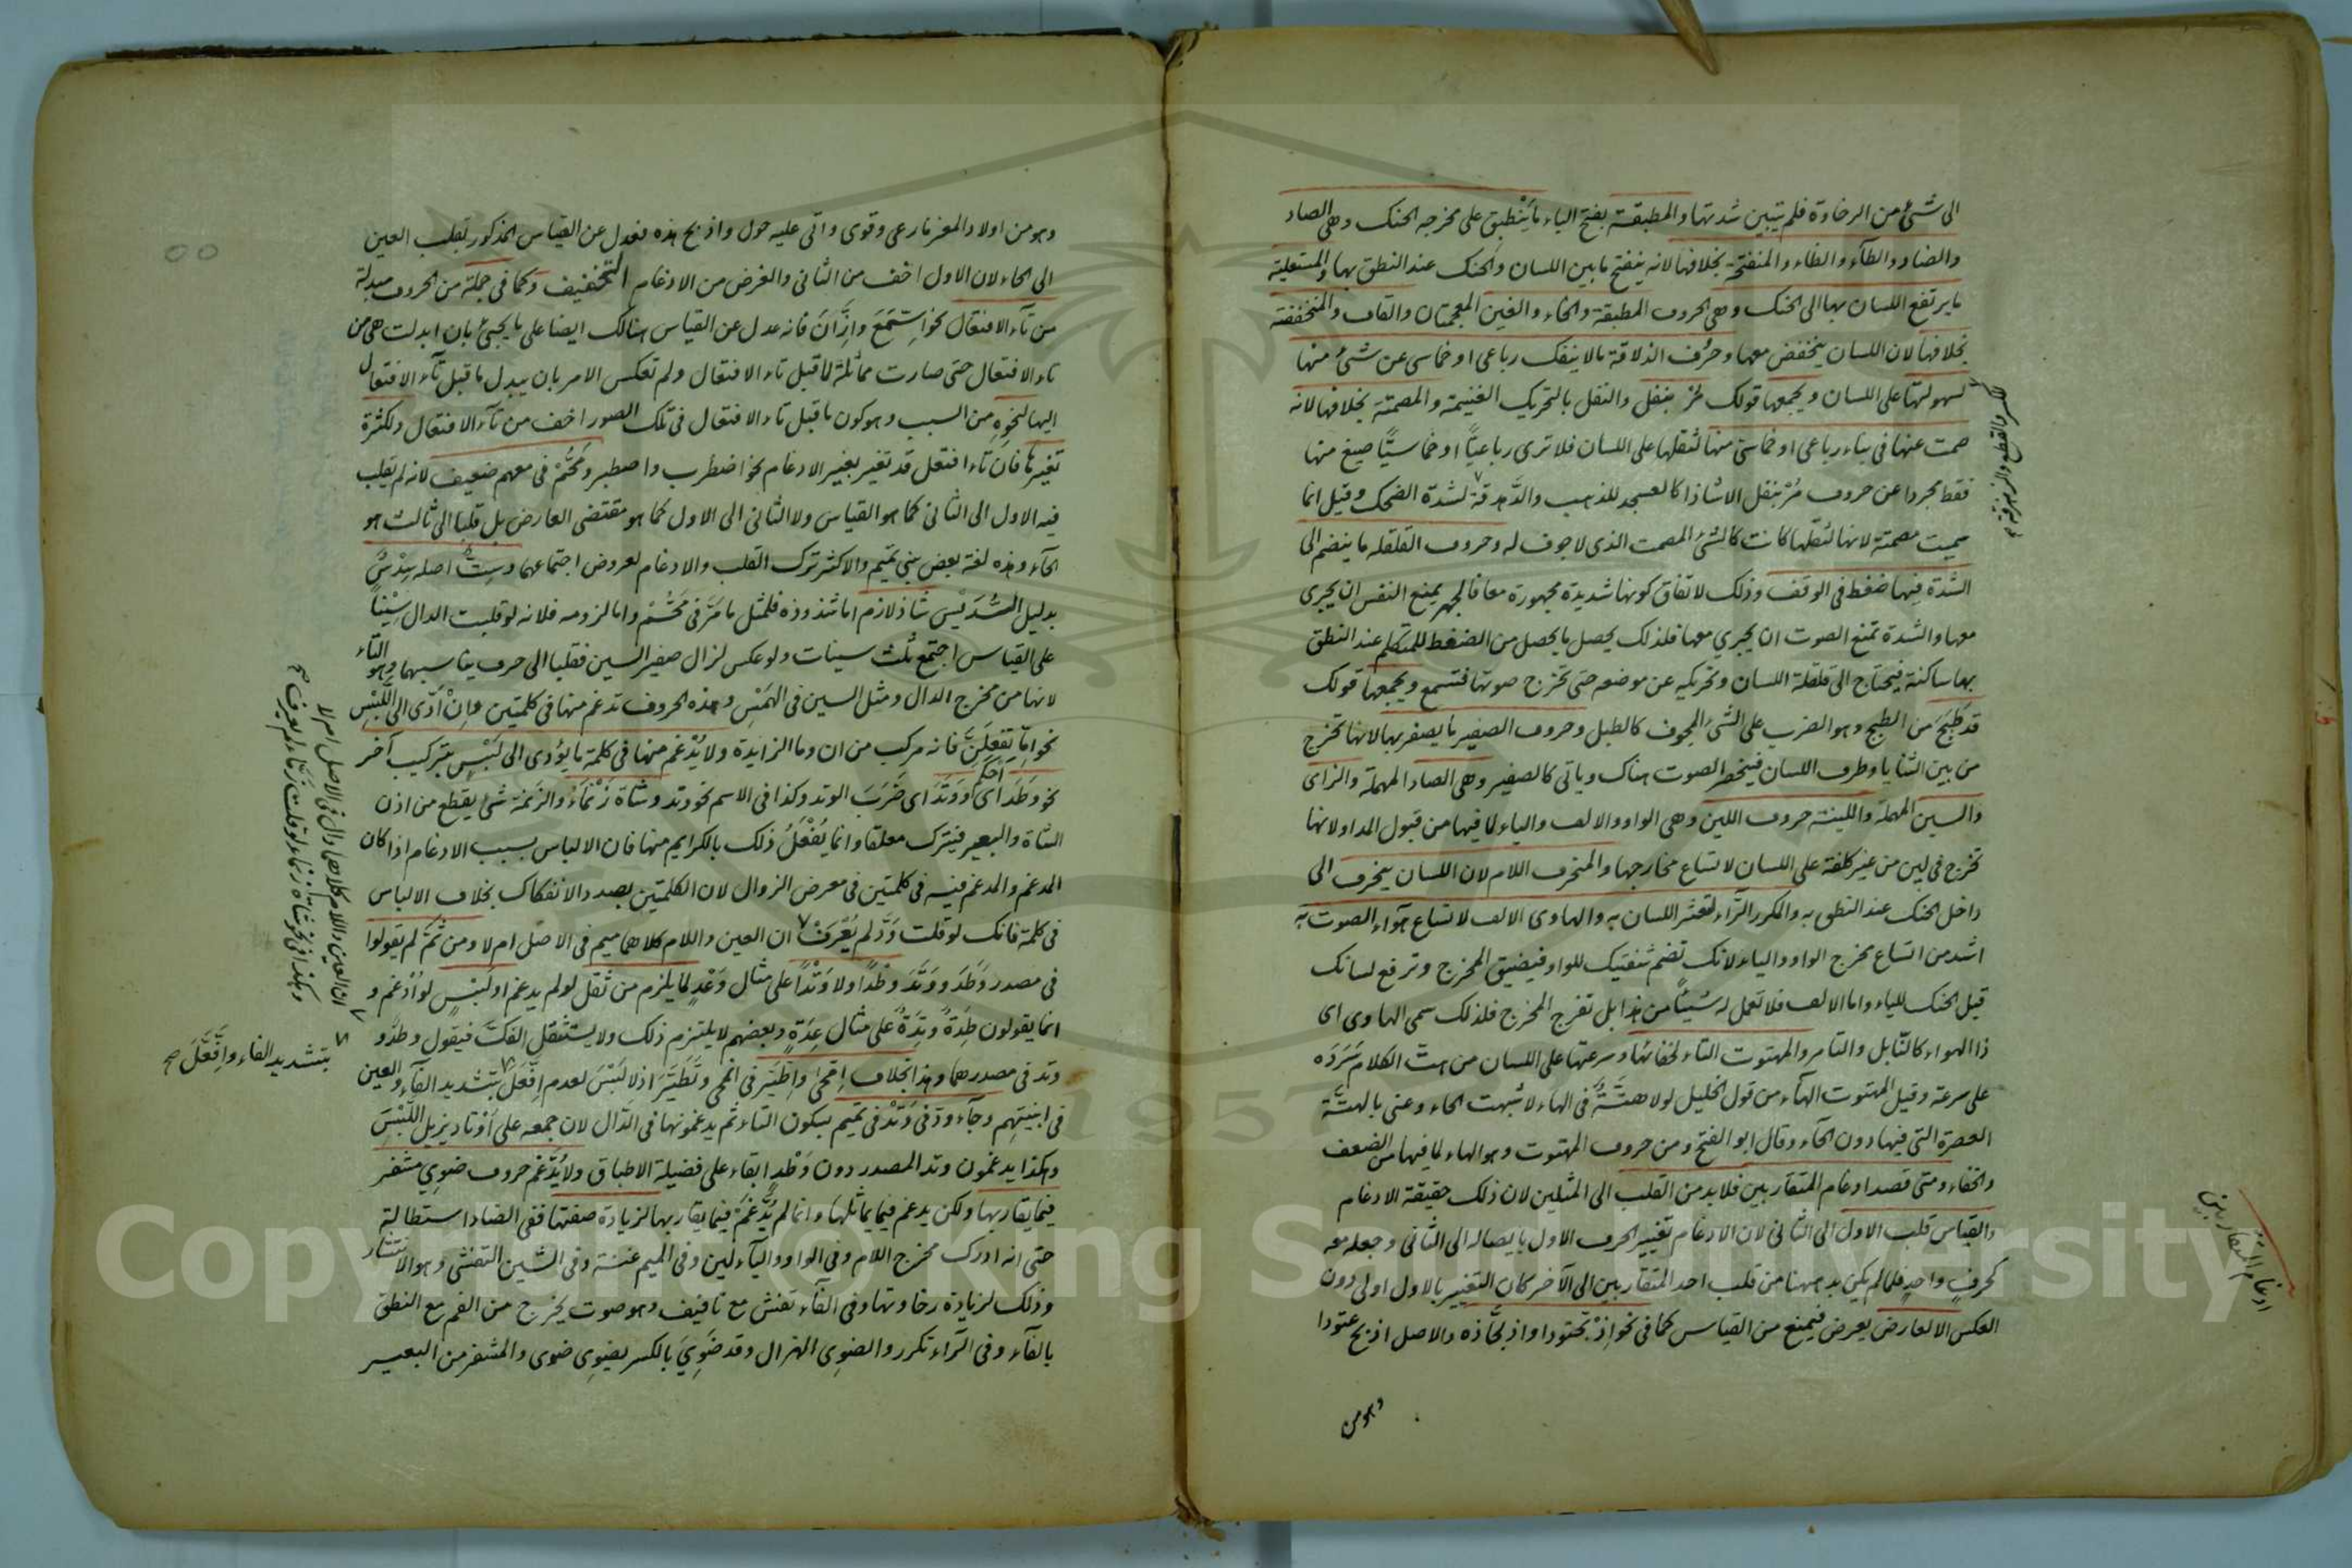 الى شئ من الرخاوة فلم تتبين شدتها والمطبقة بفتح الباء ما ينطبق على مخرجه الحنك وهى الصاد
والضاد والطآء والظاء والمنفتحة بخلافها لانه ينفتح ما بين اللسان والحنك عند النطق بها والمستعلية
ما يرتفع اللسان بها الى الحنك وهى الحروف المطبقة والخاء والغين المعجمتان والقاف والمنخفضة
بخلافها لان اللسان ينخفض معها وحروف الذلاقة ما لا ينفك رباعى او خماسى عن شئ منها
لسهولتها على اللسان ويجمعها قولك مر بنفل والنفل بالتحريك الغنيمة والمصمتة بخلافها لانه
صمت عنها فى بناء رباعى او خماسى منها لثقلها على اللسان فلا ترى رباعيًا او خماسيًا صيغ منها
فقط مجردا عن حروف مُرْ بنفل الا شاذا كالعسجد للذهب والدَّهدقة لشدة الضحك وقيل انما
سميت مصمتة لانها لثقلها كانت كالشئ المصمت الذى لا جوف له وحروف القلقلة ما ينضم الى
الشدة فيها ضغط فى الوقف وذلك لاتفاق كونها شديدة مجهورة معا فالجهر يمنع النفس ان يجرى
معها والشدة تمنع الصوت ان يجرى معها فلذلك يحصل ما يحصل من الضغط للمتكلم عند النطق
بها ساكنة فيحتاج الى قلقلة اللسان وتحريكه عن موضعه حتى تخرج صوتها فتسمع ويجمعها قولك
قد طبج من الطبج وهو الضرب على الشئ المجوف كالطبل وحروف الصفير ما يصفر بها لانها تخرج
من بين الثنايا وطرف اللسان فينحصر الصوت هناك وياتى كالصفير وهى الصاد المهملة والزاى
والسين المهملة واللينة حروف اللين وهى الواو والالف والياء لما فيها من قبول المد او لانها
تخرج فى لين من غير كلفة على اللسان لاتساع مخارجها والمنحرف اللام لان اللسان ينحرف الى
داخل الحنك عند النطق به والمكرر الرآء لتعثر اللسان به والهاوى الالف لاتساع هوآء الصوت به
اشد من اتساع مخرج الواو والياء لانك تضم شفتيك للواو فيضيق المخرج وترفع لسانك
قبل الحنك للياء واما الالف فلا تعمل له شيئًا من هذا بل تفرج المخرج فلذلك سمى الهاوى اى
ذا الهواء كالنَّابل والتامر والمهتوت التاء لخفائها وسرعتها على اللسان من هتّ الكلام سَرَدَه
على سرعة وقيل المهتوت الهآء من قول الخليل لولا هَتَّةٌ فى الهاء لاشبهت الحاء وعنى بالهتَّة
العصرة التى فيها دون الحآء وقال ابو الفتح ومن حروف المهتوت وهو الهاء لما فيها من الضعف
والخفاء ومتى قصد ادغام المتقاربين فلا بد من القلب الى المثلين لان ذلك حقيقة الادغام
والقياس قلب الاول الى الثانى لان الادغام تغيير الحرف الاول بايصاله الى الثانى وجعله معه
كحرفٍ واحدٍ فلما لم يكن بد ههنا من قلب احد المتقاربين الى الآخر كان التغيير بالاول اولى دون
العكس الا لعارض يعرض فيمنع من القياس كما فى نحو اذْبَحّتودا واذبحّاذه والاصل اذبح عتودا
وهو من
ادغام المتقاربين
وهو من اولاد المعز ما رعى وقوى واتى عليه حول واذبح هذه فعدل عن القياس المذكور بقلب العين
الى الحاء لان الاول اخف من الثانى والغرض من الادغام التخفيف وكما فى جملة من الحروف مبدلة
من تآء الافتعال نحو اِسَّمَعَ واِزَّانَ فانه عدل عن القياس هنالك ايضا على ما يجئ بان ابدلت هى من
تاء الافتعال حتى صارت مماثلة لما قبل تاء الافتعال ولم تعكس الامر بان يبدل ما قبل تآء الافتعال
اليها لنحوه من السبب وهو كون ما قبل تاء الافتعال فى تلك الصور اخف من تآء الافتعال ولكثرة
تغيرها فان تاء افتعل قد تغير بغير الادغام نحو اضطرب واصطبر ومَحُّمْ فى معهم ضعيف لانه لم يقلب
فيه الاول الى الثانى كما هو القياس ولا الثانى الى الاول كما هو مقتضى العارض بل قلبا الى ثالث هو
الحآء وهذه لغة بعض بنى تميم والاكثر ترك القلب والادغام لعروض اجتماعهما وسِتٌّ اصله سِدْسٌ
بدليل السُّدَيْس شاذ لازم اما شذوذه فلمثل ما مَرَّ فى مَحُّمْ واما لزومه فلانه لو قلبت الدال سِيْنًا
على القياس اجتمع ثلث سينات ولو عكس لزال صفير السين فقلبا الى حرف يناسبهما وهو التاء
لانها من مخرج الدال ومثل السين فى الهَمْسِ وهذه الحروف تدغم منها فى كلمتين واِنْ اَدّى الى اللَّبْسِ
نحو اِمَّا تَفْعَلَنَّ فانه مركب من ان وما الزايدة ولا يُدْغم منها فى كلمة ما يؤدى الى لَبْسٍ بتركيب آخر
نحو وطَدَ اى اَحكم ووَتَدَ اى ضَرَبَ الوتد وكذا فى الاسم نحو وتد وشاة زَنْمَاءُ والزنمة شئ يقطع من اذن
الشاة والبعير فيترك معلقا وانما يُفْعَلُ ذلك بالكرايم منها فان الالباس بسبب الادغام اذا كان
المدغم والمدغم فيه فى كلمتين فى معرض الزوال لان الكلمتين بصدد الانفكاك بخلاف الالباس
فى كلمة فانك لو قلت وَدَّ لم يُعْرَفْ ان العين واللام كلاهما ميم فى الاصل ام لا ومن ثَمَّ لم يقولوا
فى مصدر وَطَدَ ووَتَدَ وَطْدًا ولا وَتْدًا على مثال وَعْدٍ لما يلزم من ثقل لو لم يدغم او لَبْسٍ لو اُدْغم و
انما يقولون طِدَةً وتِدَةً على مثال عِدَةٍ وبعضهم لا يلتزم ذلك ولا يستثقل الفكّ فيقول وطد و
وتد فى مصدرهما وهذا بخلاف اِمّحَى واِطَّيَّر فى انمحى وتَطَيَّر اذ لا لَبْسَ لعدم اِفَّعَلَ بتشديد الفآء والعين
فى ابنيتهم وجآء ودّ فى وَتَدْ فى تميم بسكون التاء ثم يدغمونها فى الدّال لان جمعه على اَوْتاد يزيل اللَّبْسَ
وهكذا يدغمون وتد المصدر دون وَطْدٍ ابقاء على فضيلة الاطباق ولا يُدّغم حروف ضوى مشفر
فيما يقاربها ولكن يدغم فيما يماثلها وانما لم يُدَّغمْ فيما يقاربها لزيادة صفتها ففى الضاد استطالة
حتى انه ادرك مخرج اللام وفى الواو واليآء لين وفى الميم غنة وفى الشين التفشى وهو الانتشار
وذلك لزيادة رخاوتها وفى الفآء تفش مع تافيف وهو صوت يخرج من الفم مع النطق
بالفآء وفى الرّاء تكرر والضوى الهزال وقد ضَوِىَ بالكسر يضوى ضوى والمشفر من البعير
ان العين واللام كلاهما دال فى الاصل ام لا
وهكذا فى نحو شاة زنماء لو قلت زمّاء لم يعرف
بتشديد الفاء وافَّعَّلَ صح
Copyright © King Saud University
1957